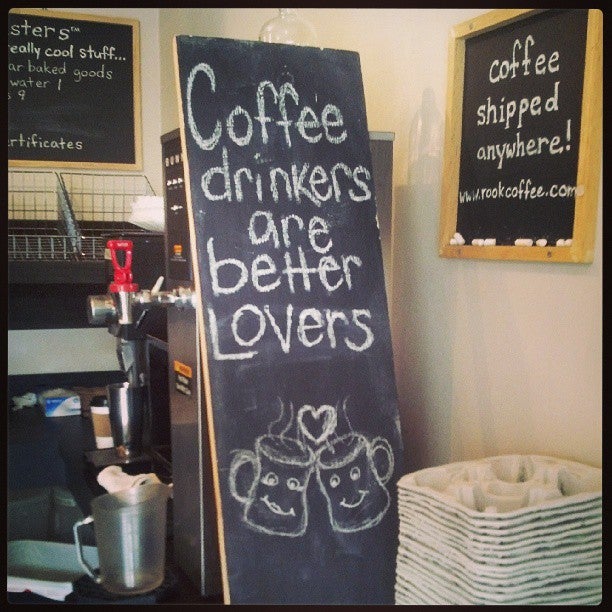 sters™
eally cool stuff...
ar baked goods
water 1
9
rtificates
Coffee
drinkers
are
better
Lovers
coffee
shipped
anywhere!
www.rookcoffee.com